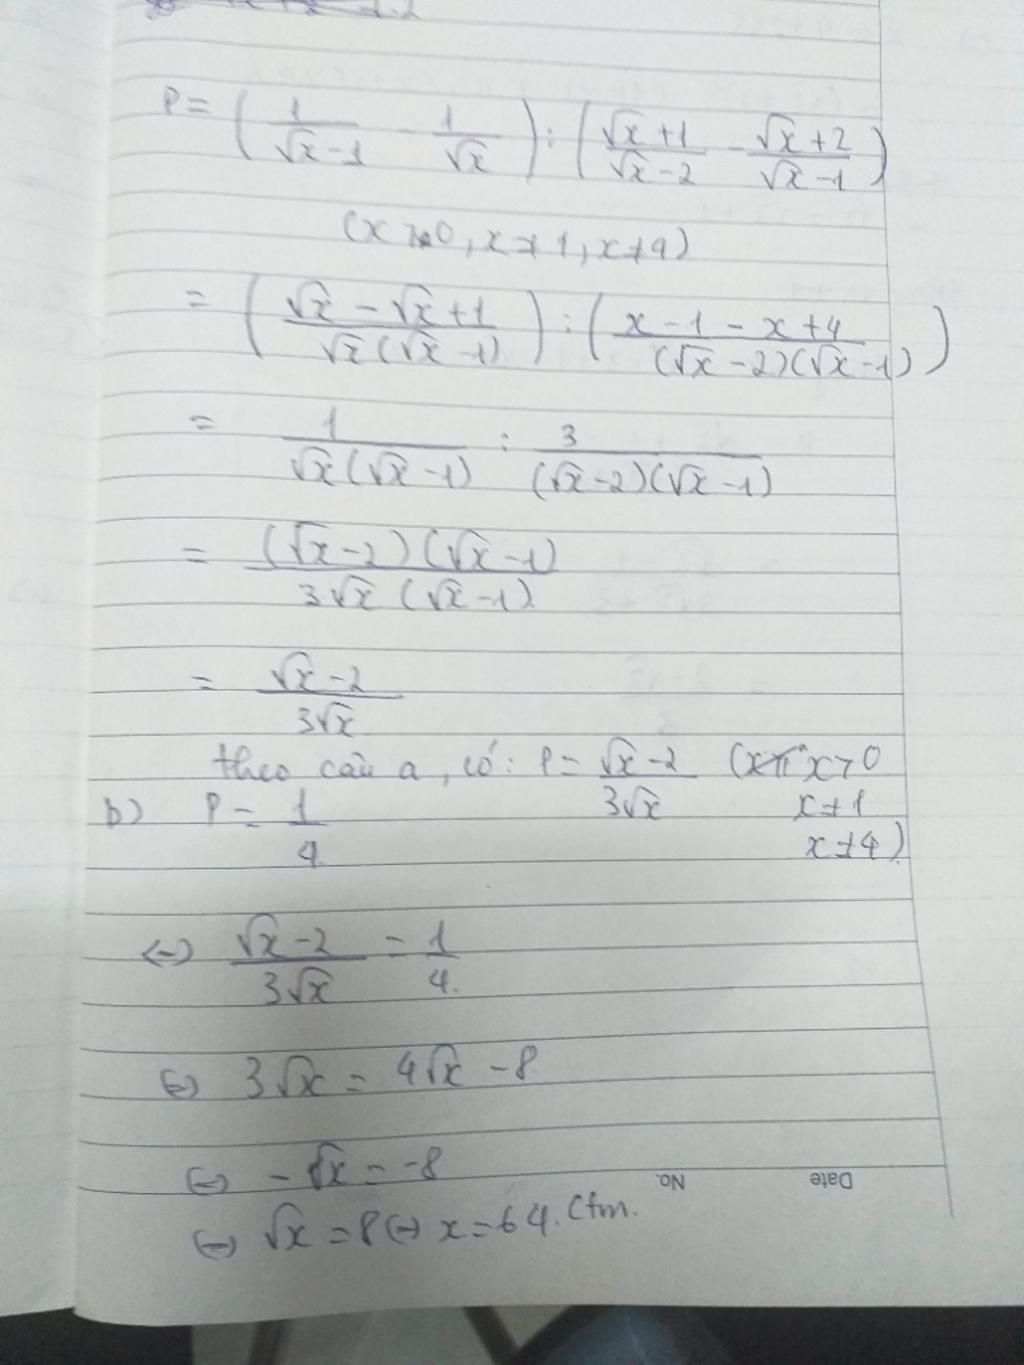 P = (1/(√x-1) - 1/√x) : ((√x+1)/(√x-2) - (√x+2)/(√x-1))
(x>0, x≠1, x≠4)
= ((√x-√x+1)/(√x(√x-1))) : ((x-1-x+4)/((√x-2)(√x-1)))
= 1/(√x(√x-1)) : 3/((√x-2)(√x-1))
= ((√x-2)(√x-1))/(3√x(√x-1))
= (√x-2)/(3√x)
theo câu a, có: P = (√x-2)/(3√x) (x>0
x≠1
x≠4)
b) P = 1/4
<=> (√x-2)/(3√x) = 1/4
<=> 3√x = 4√x - 8
<=> -√x = -8
No. Date
<=> √x = 8 <=> x = 64. (tm.